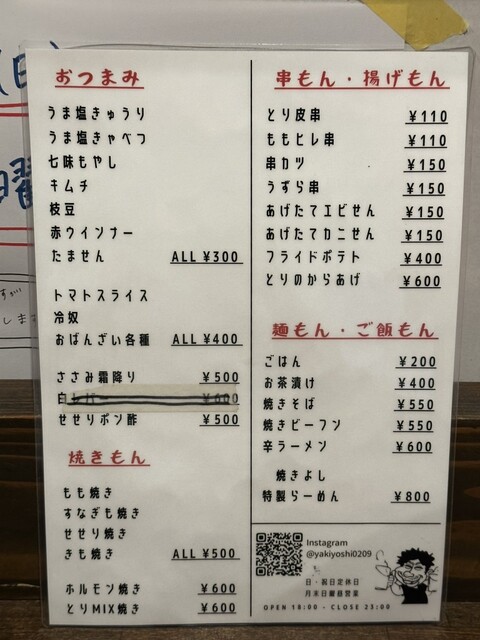 おつまみ
うま塩きゅうり
うま塩きゃべつ
七味もやし
キムチ
枝豆
赤ウインナー
たません ALL ¥300
トマトスライス
冷奴
おばんざい各種 ALL ¥400
ささみ霜降り ¥500
白レバー ¥600
せせりポン酢 ¥500
焼きもん
もも焼き
すなぎも焼き
せせり焼き
きも焼き ALL ¥500
ホルモン焼き ¥600
とりMIX焼き ¥600
串もん・揚げもん
とり皮串 ¥110
ももヒレ串 ¥110
串カツ ¥150
うずら串 ¥150
あげたてエビせん ¥150
あげたてカニせん ¥150
フライドポテト ¥400
とりのからあげ ¥600
麺もん・ご飯もん
ごはん ¥200
お茶漬け ¥400
焼きそば ¥550
焼きビーフン ¥550
辛ラーメン ¥600
焼きよし
特製らーめん ¥800
Instagram
@yakiyoshi0209
日・祝日定休日
月末日曜昼営業
OPEN 18:00 - CLOSE 23:00
曜
すが
します